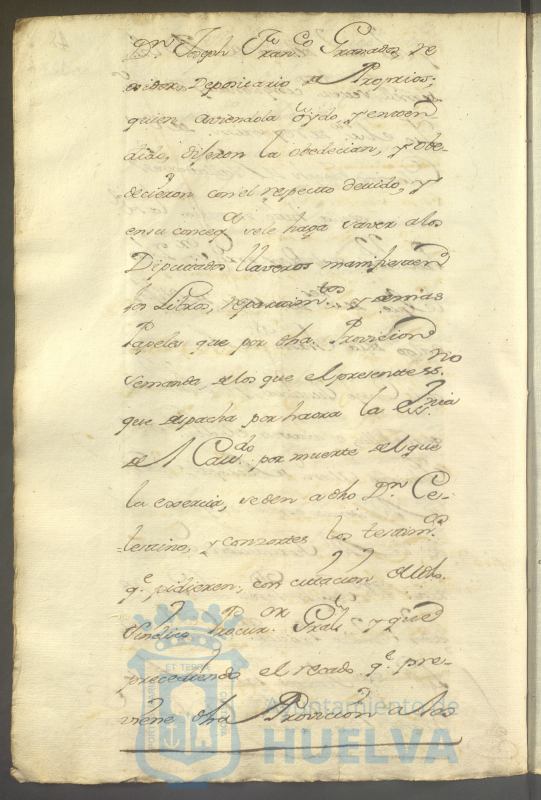 Dn. Joseph Franco. Granados, Re
xidor, Depositario de Proprios;
quien aviendola oydo, y enten
dido, dixeron la obedecian, y obe-
decieron con el respecto devido, y
en su conseqa. se le haga saver a los
Diputados llaveros manifiesten
los Libros, repartimtos. y demas
Papeles que por dha. Provicion
se manda, de los que el presente ssno.
que despacha por haora la essria.
del Cavdo. por muerte del que
la exercia, se den a dho Dn. Ce-
lestino, y consortes los testimos.
qe. pidieren, con citacion del dho.
Sindico Procuror. Gral. y que
precediendo el recado qe. pre-
viene dha Provicion a los
ET TERRAE
Ayuntamiento de
HUELVA